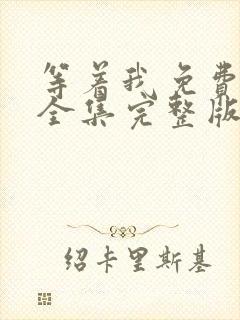 等着我免费
全集完整版
绍卡里斯基